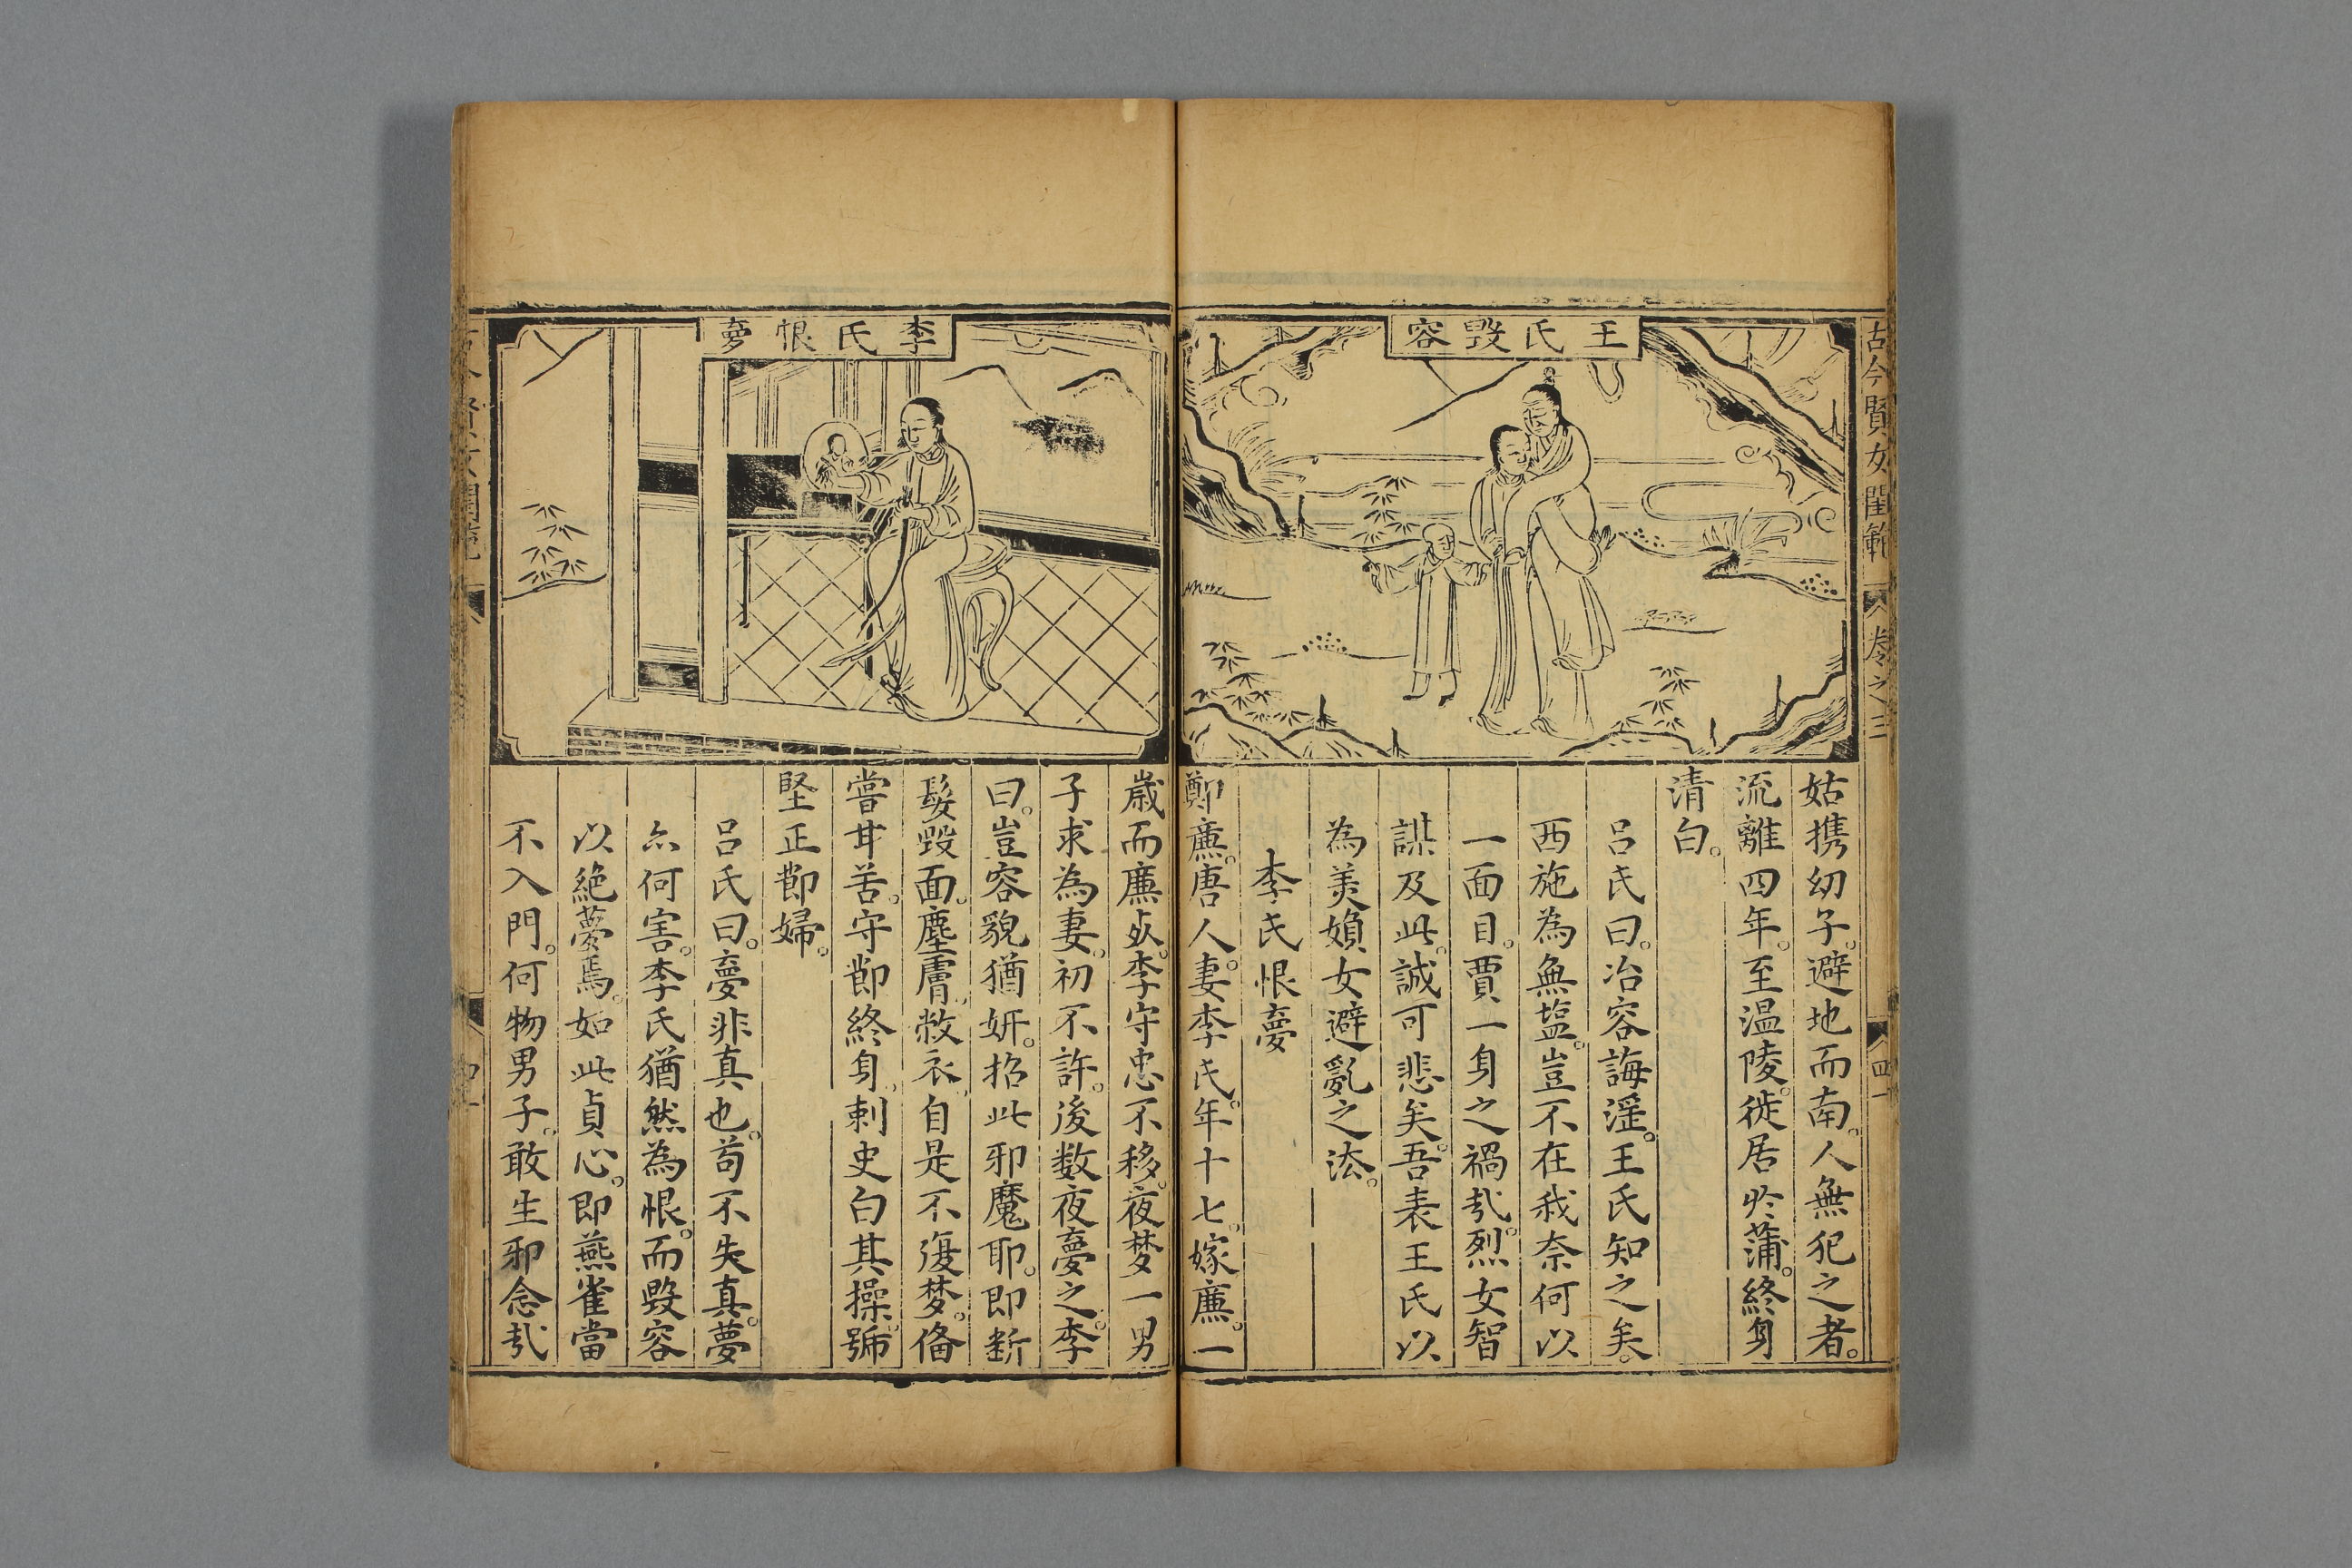 古今賢女閨範
卷之三
四一
王氏毀容
姑携幼子。避地而南。人無犯之者。
流離四年。至温陵。徙居於蒲。終身
清白。
吕氏曰。冶容誨淫。王氏知之矣。
西施為無塩。豈不在我。奈何以
一面目。賈一身之禍㢤。烈女智
謀及此。誠可悲矣。吾表王氏以
為美䫉女避亂之法。
李氏恨夢
鄭廉。唐人。妻李氏。年十七。嫁廉。一
李氏恨夢
歲而廉死。李守忠不移。夜梦一男
子求為妻。初不許。後数夜夢之。李
曰。豈容貌猶妍。招此邪魔耶。即断
髮毀面。塵膚敝衣。自是不復梦。俻
嘗甘苦。守節終身。刺史白其操。號
堅正節婦。
吕氏曰。夢非真也。苟不失真。夢
亦何害。李氏猶然為恨。而毀容
以絶夢焉。如此貞心。即燕雀當
不入門。何物男子。敢生邪念㢤